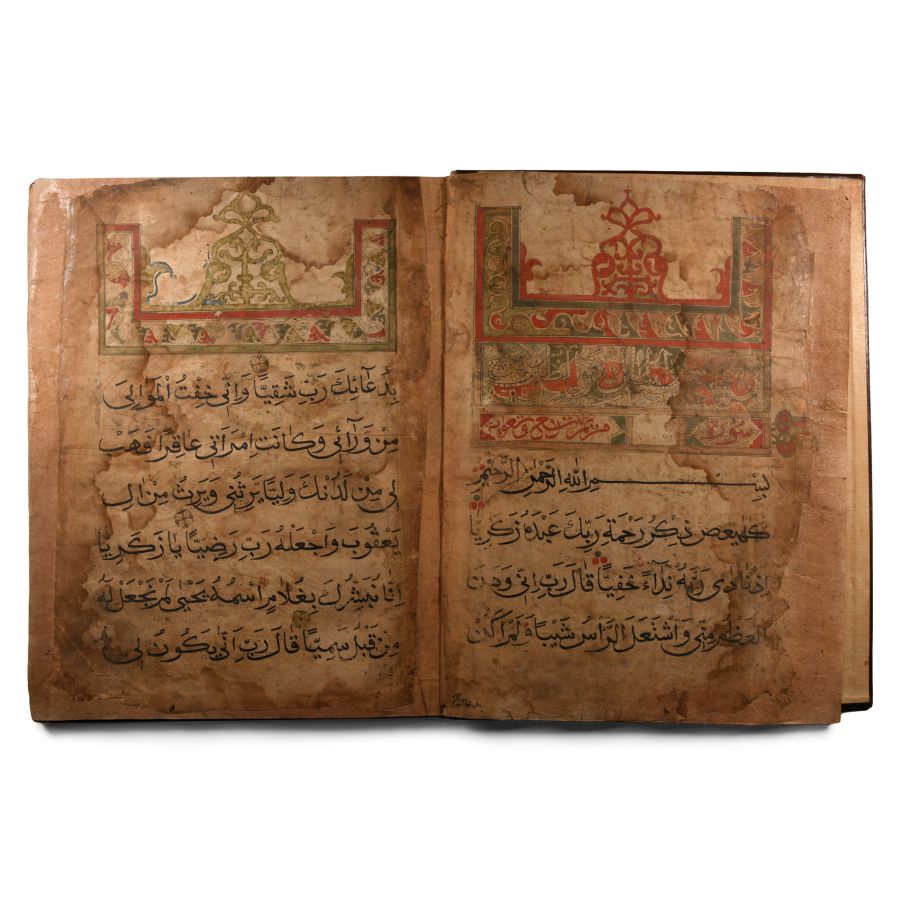 سورة مريم
بِسْمِ اللهِ الرَّحْمٰنِ الرَّحِيْمِ
كهٰيٰعص ذِكْرُ رَحْمَةِ رَبِّكَ عَبْدَهُ زَكَرِيَّا
اِذْ نَادٰى رَبَّهُ نِدَآءً خَفِيًّا قَالَ رَبِّ اِنِّى وَهَنَ
العَظْمُ مِنِّى وَاشْتَعَلَ الرَّاسُ شَيْبًا وَلَمْ اَكُنْ
بِدُعَائِكَ رَبِّ شَقِيًّا وَاِنِّى خِفْتُ الْمَوَالِىَ
مِنْ وَرَآئِى وَكَانَتِ امْرَاَتِى عَاقِرًا فَهَبْ
لِى مِنْ لَدُنْكَ وَلِيًّا يَرِثُنِى وَيَرِثُ مِنْ اٰلِ
يَعْقُوْبَ وَاجْعَلْهُ رَبِّ رَضِيًّا يَا زَكَرِيَّا
اِنَّا نُبَشِّرُكَ بِغُلَامٍ اسْمُهُ يَحْيٰى لَمْ نَجْعَلْ لَهُ
مِنْ قَبْلُ سَمِيًّا قَالَ رَبِّ اَنّٰى يَكُوْنُ لِى